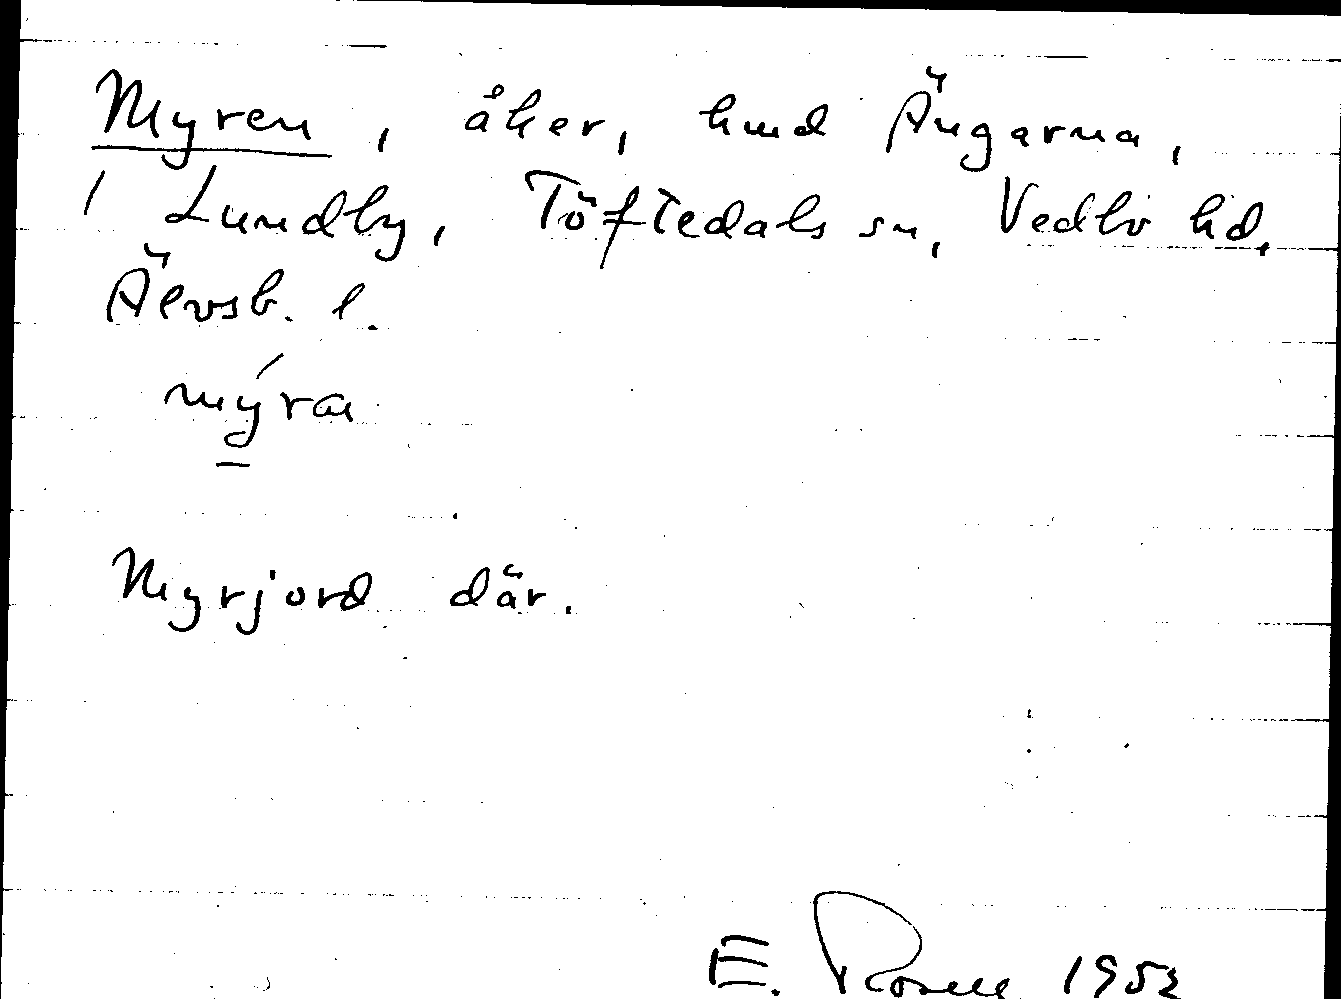 Myren, åker, hmd Ängarna,
1 Lundby, Töftedals sn, Vedbo hd,
Älvsb. l.
mýra
Myrjord där.
E. Rosell 1952